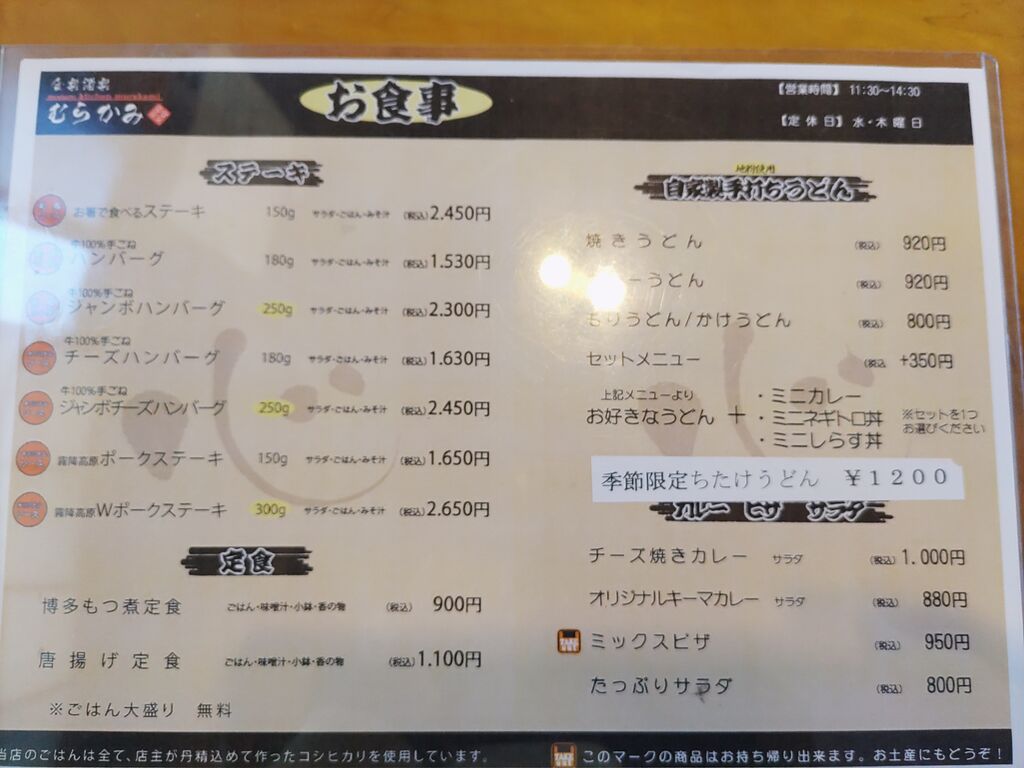 むらかみ
お食事
【営業時間】 11:30〜14:30
【定休日】 水・木曜日
ステーキ
お箸で食べるステーキ 150g サラダ・ごはん・みそ汁 (税込)2.450円
牛100%手ごね
ハンバーグ 180g サラダ・ごはん・みそ汁 (税込)1.530円
牛100%手ごね
ジャンボハンバーグ 250g サラダ・ごはん・みそ汁 (税込)2.300円
牛100%手ごね
チーズハンバーグ 180g サラダ・ごはん・みそ汁 (税込)1.630円
牛100%手ごね
ジャンボチーズハンバーグ 250g サラダ・ごはん・みそ汁 (税込)2.450円
霧降高原ポークステーキ 150g サラダ・ごはん・みそ汁 (税込)1.650円
霧降高原Wポークステーキ 300g サラダ・ごはん・みそ汁 (税込)2.650円
定食
博多もつ煮定食 ごはん・味噌汁・小鉢・香の物 (税込) 900円
唐揚げ定食 ごはん・味噌汁・小鉢・香の物 (税込)1.100円
※ごはん大盛り 無料
地粉使用
自家製手打ちうどん
焼きうどん (税込) 920円
ーうどん (税込) 920円
もりうどん/かけうどん (税込) 800円
セットメニュー (税込 +350円
上記メニューより
お好きなうどん +
・ミニカレー
・ミニネギトロ丼
・ミニしらす丼
※セットを1つ
お選びください
季節限定ちたけうどん ¥1200
カレー ピザ サラダ
チーズ焼きカレー サラダ (税込)1.000円
オリジナルキーマカレー サラダ (税込) 880円
ミックスピザ (税込) 950円
たっぷりサラダ (税込) 800円
当店のごはんは全て、店主が丹精込めて作ったコシヒカリを使用しています。
このマークの商品はお持ち帰り出来ます。お土産にもどうぞ!